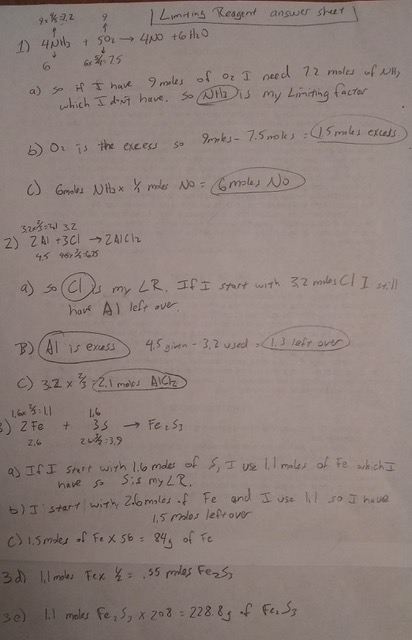 Limiting Reagent answer sheet
9x 4/5=7.2 9
1) 4NH3 + 5O2 → 4NO + 6H2O
6 6x 5/4=7.5
a) so if I have 9 moles of O2 I need 7.2 moles of NH3
which I don't have. so NH3 is my Limiting factor
b) O2 is the excess so 9moles - 7.5moles = 1.5 moles excess
C) 6moles NH3 x 1/1 moles NO = 6 moles NO
3.2 x 2/3 = 2.1 3.2
2) 2Al + 3Cl → 2AlCl2
4.5
a) so Cl is my LR. If I start with 3.2 moles Cl I still
have Al left over.
B) Al is excess 4.5 given - 3.2 used = 1.3 left over
C) 3.2 x 2/3 = 2.1 moles AlCl2
1.6x 2/3=1.1 1.6
3) 2Fe + 3S → Fe2S3
2.6 2.6x 3/2=3.9
a) If I start with 1.6 moles of S, I use 1.1 moles of Fe which I
have so S is my LR.
b) I start with 2.6 moles of Fe and I use 1.1 so I have
1.5 moles left over
C) 1.5 moles of Fe x 56 = 84g of Fe
3d) 1.1 moles Fe x 1/2 = .55 moles Fe2S3
3e) 1.1 moles Fe2S3 x 208 = 228.8g of Fe2S3